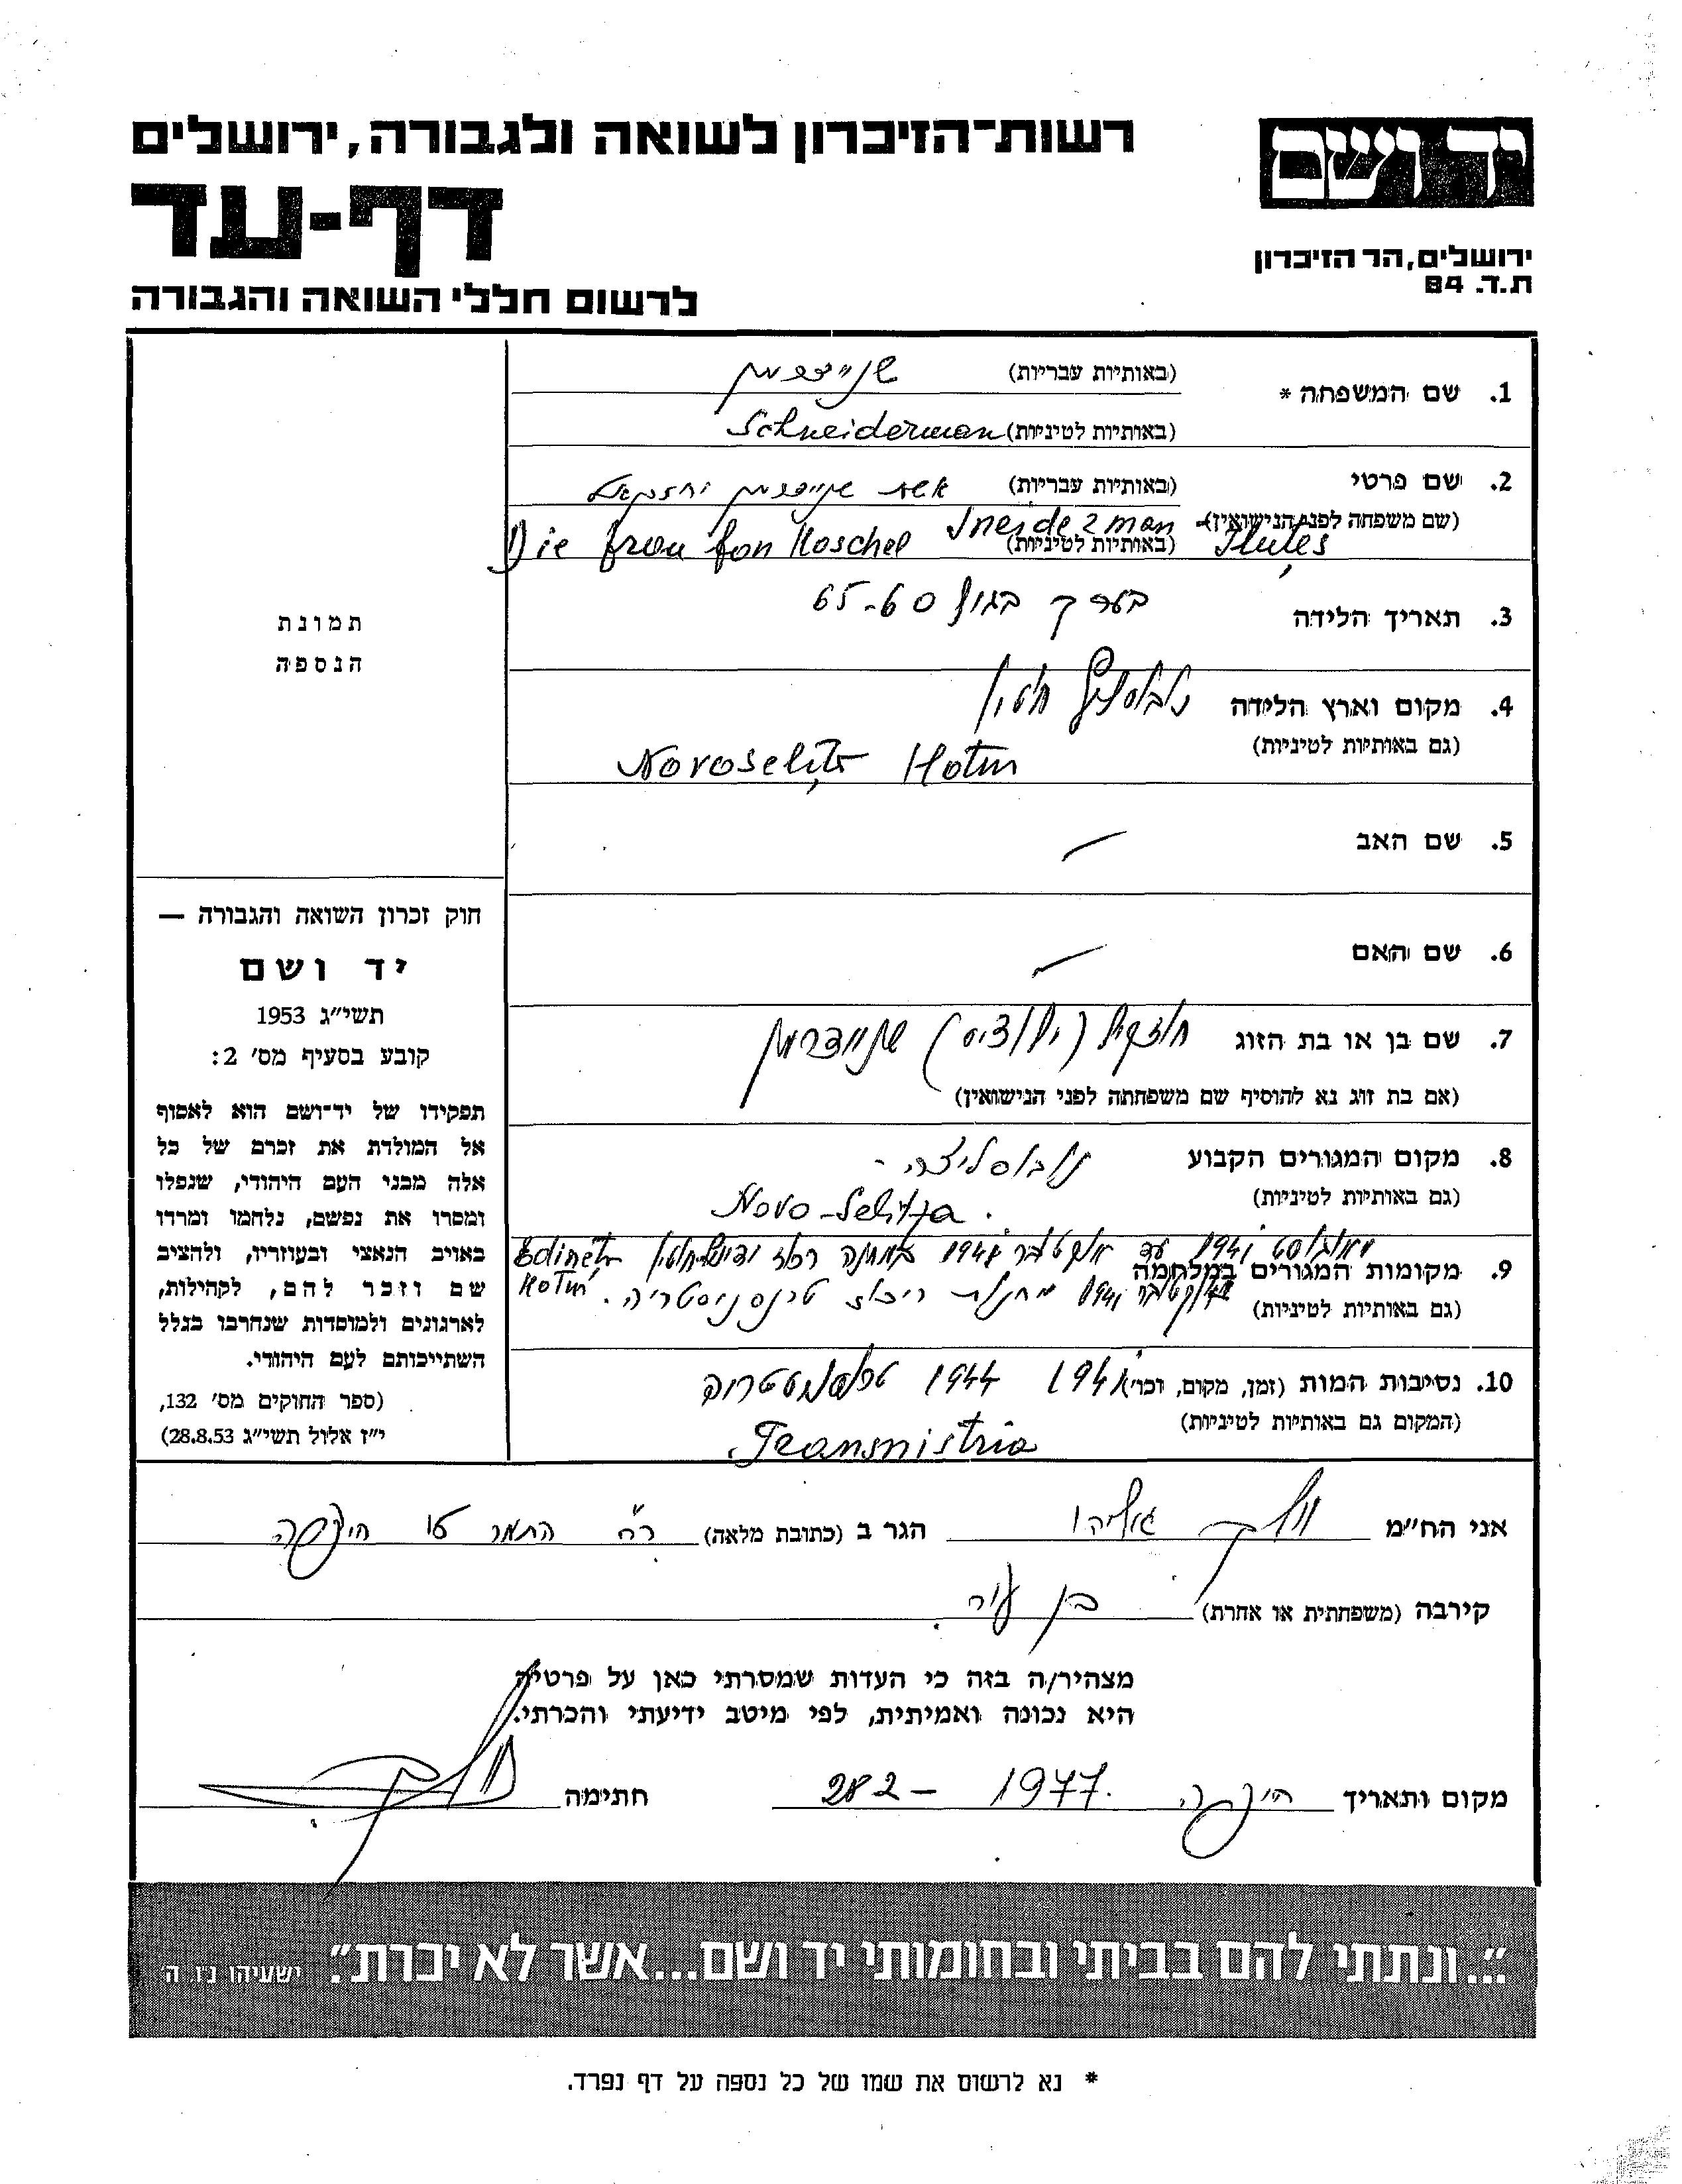 רשות־הזיכרון לשואה ולגבורה, ירושלים
יד ושם
דף-עד
ירושלים, הר הזיכרון
ת.ד. 84
לרשום חללי השואה והגבורה
1. שם המשפחה *
(באותיות עבריות) שניידרמן
(באותיות לטיניות) Schneiderman
2. שם פרטי
(באותיות עבריות) אשת שניידרמן
(שם משפחה לפני הנישואין)
(באותיות לטיניות)
Die frau fon Koschel Sneiderman
3. תאריך הלידה בערך בגיל 60-65
4. מקום וארץ הלידה חוטין
(גם באותיות לטיניות)
Hotin
5. שם האב —
6. שם האם —
7. שם בן או בת הזוג שניידרמן
(אם בת זוג נא להוסיף שם משפחתה לפני הנישואין)
8. מקום המגורים הקבוע נובוסליצה -
(גם באותיות לטיניות) Novo-Selitza.
9. מקומות המגורים במלחמה
מאוגוסט 1941 עד אוקטובר 1941 במחנה Edinetz
(גם באותיות לטיניות) 1941 מחנות ריכוז טרנסניסטריה. Hotin
10. נסיבות המות (זמן, מקום, וכו') 1941 1944
(המקום גם באותיות לטיניות)
Transnistria
תמונת
הנספה
חוק זכרון השואה והגבורה —
יד ושם
תשי״ג 1953
קובע בסעיף מס׳ 2:
תפקידו של יד־ושם הוא לאסוף
אל המולדת את זכרם של כל
אלה מבני העם היהודי, שנפלו
ומסרו את נפשם, נלחמו ומרדו
באויב הנאצי ובעוזריו, ולהציב
שם וזכר להם, לקהילות,
לארגונים ולמוסדות שנחרבו בגלל
השתייכותם לעם היהודי.
(ספר החוקים מס׳ 132,
י״ז אלול תשי״ג 28.8.53)
אני הח״מ הגר ב (כתובת מלאה) רח׳ התמר
קירבה (משפחתית או אחרת) בן עיר.
מצהיר/ה בזה כי העדות שמסרתי כאן על פרטיה
היא נכונה ואמיתית, לפי מיטב ידיעתי והכרתי.
מקום ותאריך 282 - 1977. חתימה
"...ונתתי להם בביתי ובחומותי יד ושם...אשר לא יכרת". ישעיהו נ״ו, ה׳
* נא לרשום את שמו של כל נספה על דף נפרד.